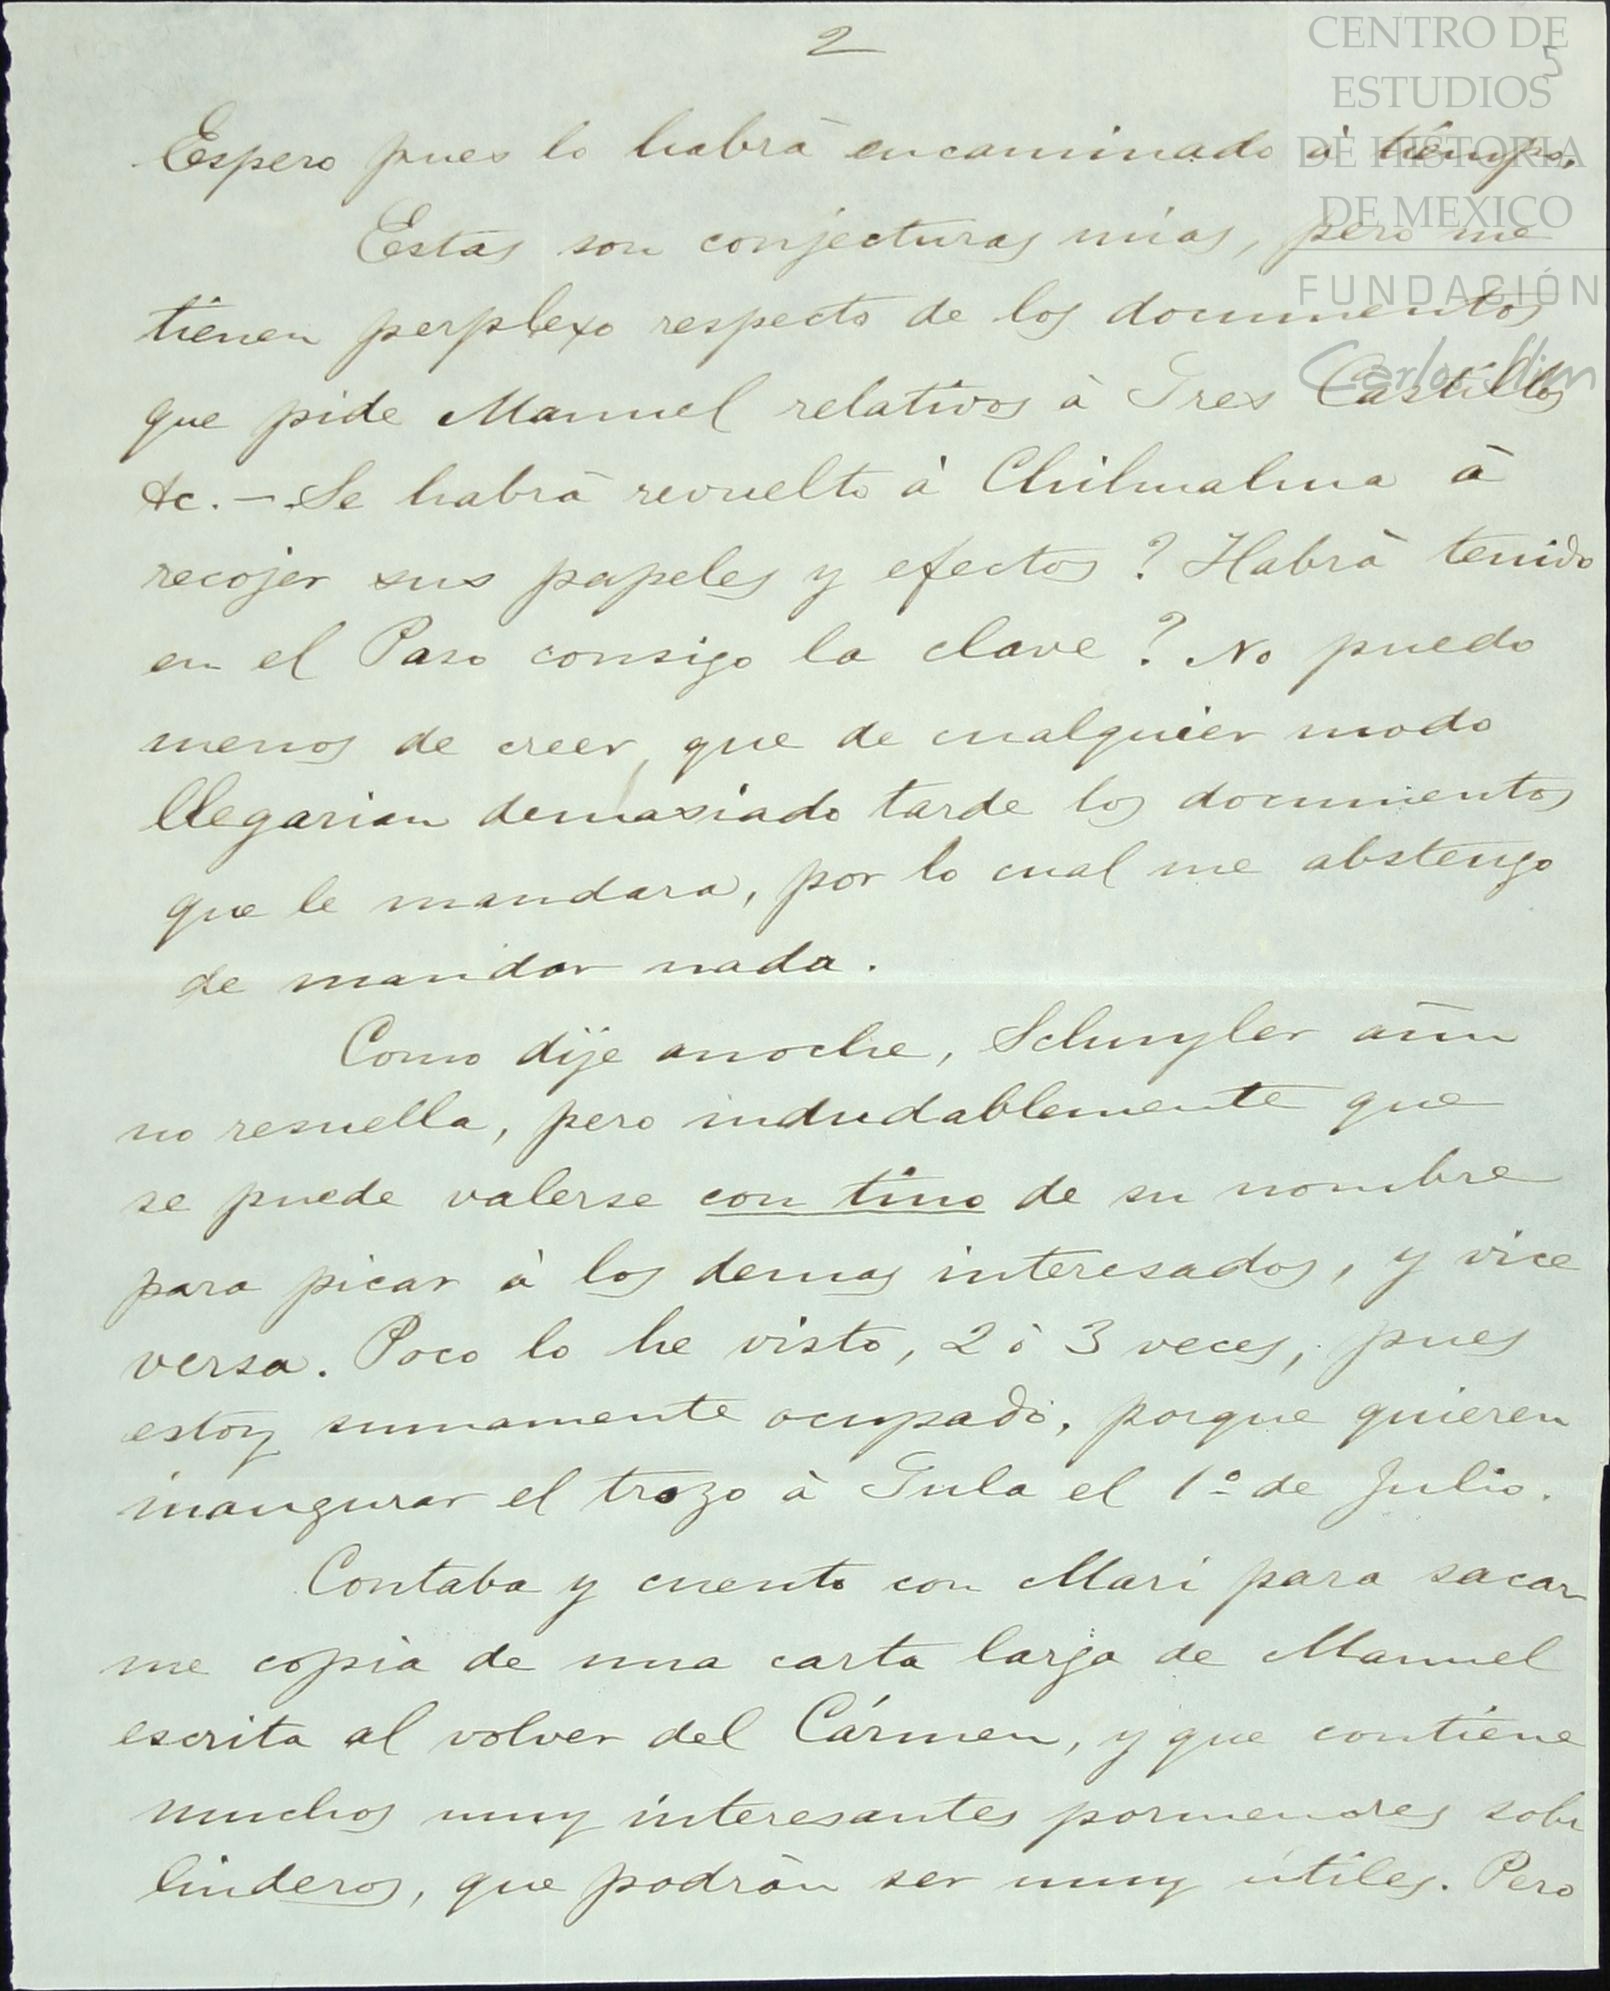 2
5
CENTRO DE
ESTUDIOS
DE HISTORIA
DE MEXICO
FUNDACIÓN
Carlos Slim
Espero pues lo habrà encaminado à tiempo.
Estas son conjecturas mias, pero me
tienen perplexo respecto de los documentos
que pide Manuel relativos à Tres Castillos
&c. — Se habrà revuelto à Chihuahua à
recojer sus papeles y efectos? Habrà tenido
en el Paso consigo la clave? No puedo
menos de creer, que de cualquier modo
llegarian demasiado tarde los documentos
que le mandara, por lo cual me abstengo
de mandar nada.
Como dije anoche, Schuyler aùn
no resuella, pero indudablemente que
se puede valerse con tino de su nombre
para picar à los demas interesados, y vice
versa. Poco lo he visto, 2 ò 3 veces, pues
estoy sumamente ocupado, porque quieren
inaugurar el trozo à Tula el 1º de Julio.
Contaba y cuento con Mari para sacar
me copia de una carta larga de Manuel
escrita al volver del Cármen, y que contiene
muchos muy interesantes pormenores sobr
linderos, que podràn ser muy útiles. Pero